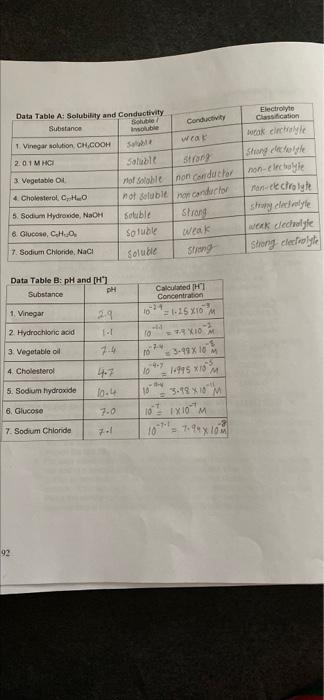 Data Table A: Solubility and Conductivity
Substance Soluble / Insoluble Conductivity Electrolyte Classification
1. Vinegar solution, CH₃COOH Soluble weak weak electrolyte
2. 0.1 M HCl Soluble Strong Strong electrolyte
3. Vegetable Oil, not soluble non conductor non-electrolyte
4. Cholesterol, C₂₇H₄₆O not soluble non conductor non-electrolyte
5. Sodium Hydroxide, NaOH Soluble Strong strong electrolyte
6. Glucose, C₆H₁₂O₆ Soluble weak weak electrolyte
7. Sodium Chloride, NaCl Soluble Strong Strong electrolyte
Data Table B: pH and [H⁺]
Substance pH Calculated [H⁺] Concentration
1. Vinegar 2.9 10⁻²·⁹ = 1.25 x10⁻³ M
2. Hydrochloric acid 1.1 10⁻¹·¹ = 7.9 x10⁻² M
3. Vegetable oil 7.4 10⁻⁷·⁴ = 3.98 x 10⁻⁸ M
4. Cholesterol 4.7 10⁻⁴·⁷ = 1.995 x 10⁻⁵ M
5. Sodium hydroxide 10.4 10⁻¹⁰·⁴ = 3.98 x 10⁻¹¹ M
6. Glucose 7.0 10⁻⁷ = 1x10⁻⁷ M
7. Sodium Chloride 7.1 10⁻⁷·¹ = 7.94 x 10⁻⁸ M
92